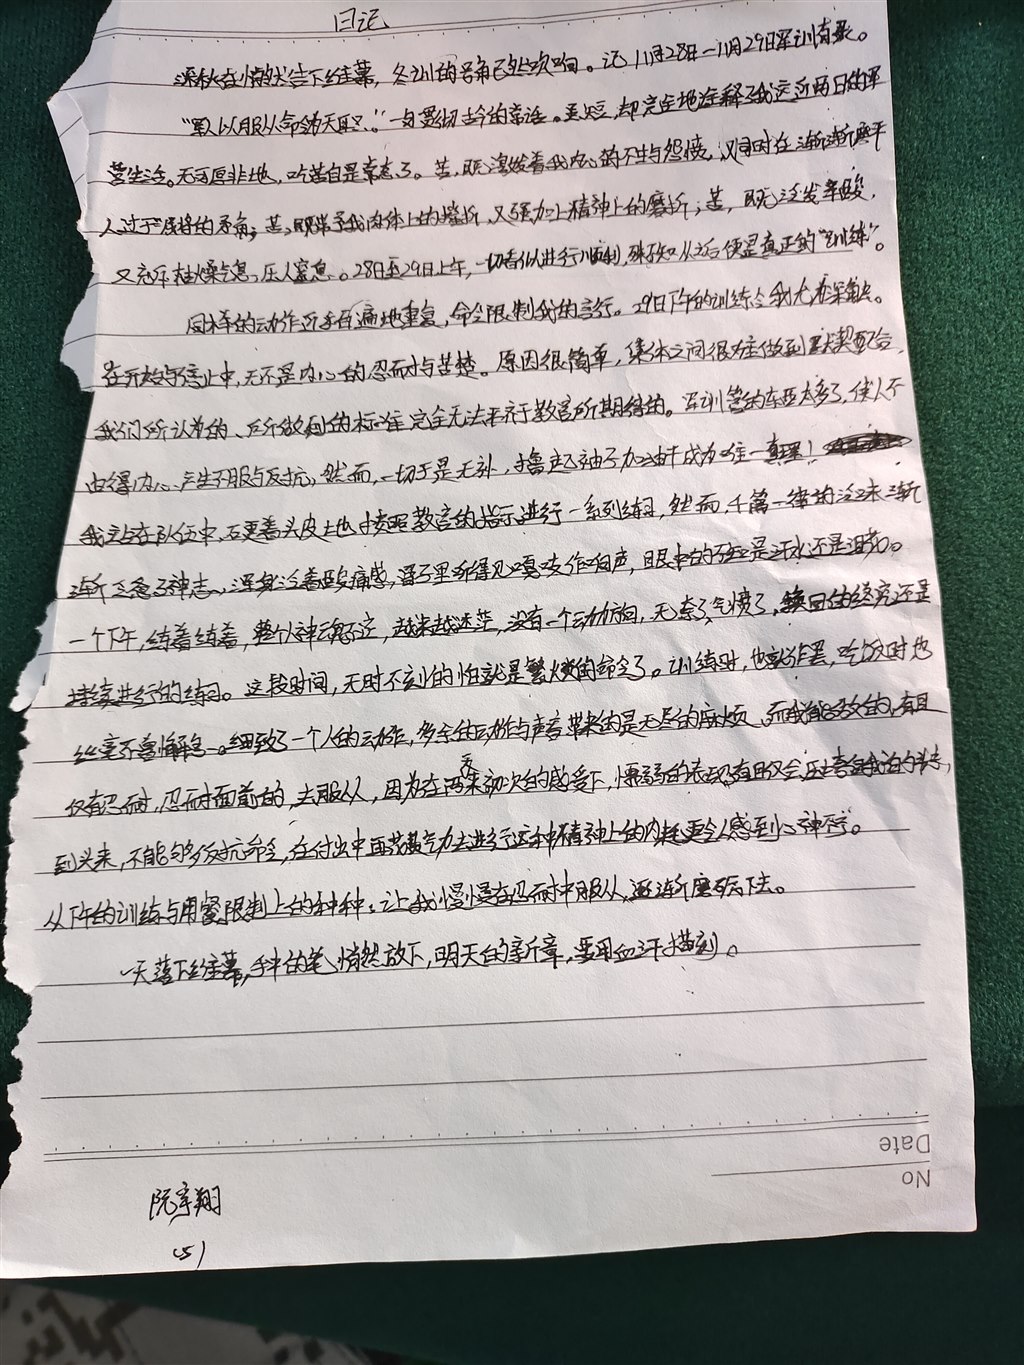 日记
深秋在悄然告下帷幕，冬训的号角已经吹响。记11月28日—11月29日军训情景。
“军人以服从命令为天职。”一句贯彻古今的常话。虽短，却完全地诠释了我这近两日的军
营生活。无可厚非地，吃苦自是常态了。苦，既激发着我内心的不甘与怨愤，又同时在渐渐磨平
人过于质将的矛角；苦，既带予我肉体上的摧折，又强加上精神上的磨折；苦，既无泛发辛酸，
又充斥枯燥气息，压人窒息。28日至29日上午，一切看似进行顺利，殊不知从之后便是真正的“训练”。
同样的动作近乎百遍地重复，命令限制我的言行。29日下午的训练令我尤有深触。
在开始与停止中，无不是内心的忍耐与苦楚。原因很简单，集体之间很难做到默契配合，
我们所认为的、所做到的标准完全无法来齐于教官所期待的。军训营的东西太多了，使人不
由得内心产生不服与反抗，然而，一切于是无补，撸起袖子加油干成为唯一真理！
我站在队伍中，硬着头皮上地按照教官的指示进行一系列练习，然而，千篇一律的泛味渐
渐泛急了神志，浑身泛着酸痛感，溜子里听得见嘎吱作响声，眼中的不知是汗水还是泪和。
一个下午，练着练着，整个人神魂不定，越来越迷茫，没有一个动力方向，无奈了，气愤了，换回的终究还是
持续进行的练习。这段时间，无时不刻的怕就是繁琐的命令了。训练时，也就作罢，吃饭时也
丝毫不喜懈怠。细致了一个人的动作，多余的动作与声音带来的是无尽的麻烦，而我能够做的，有且
仅有忍耐，忍耐面前的，去服从，因为在两天来初次的感受下，懦弱的表现有且仅会
到头来，不能够反抗命令，在付出中耗费气力去进行这种精神上的内耗更令人感到心神
从下午的训练与用餐限制上的种种，让我慢慢在忍耐中服从，逐渐磨砺下去。
一天落下帷幕，手中的笔悄然放下，明天的新章，要用血汗描刻。
Date
No
阮宇翔
(5)